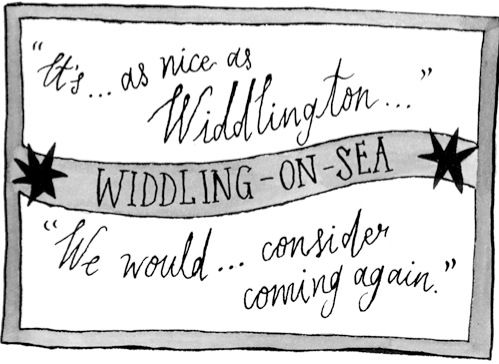 “It's... as nice as
Widdlington...”
WIDDLING-ON-SEA
“We would... consider
coming again.”